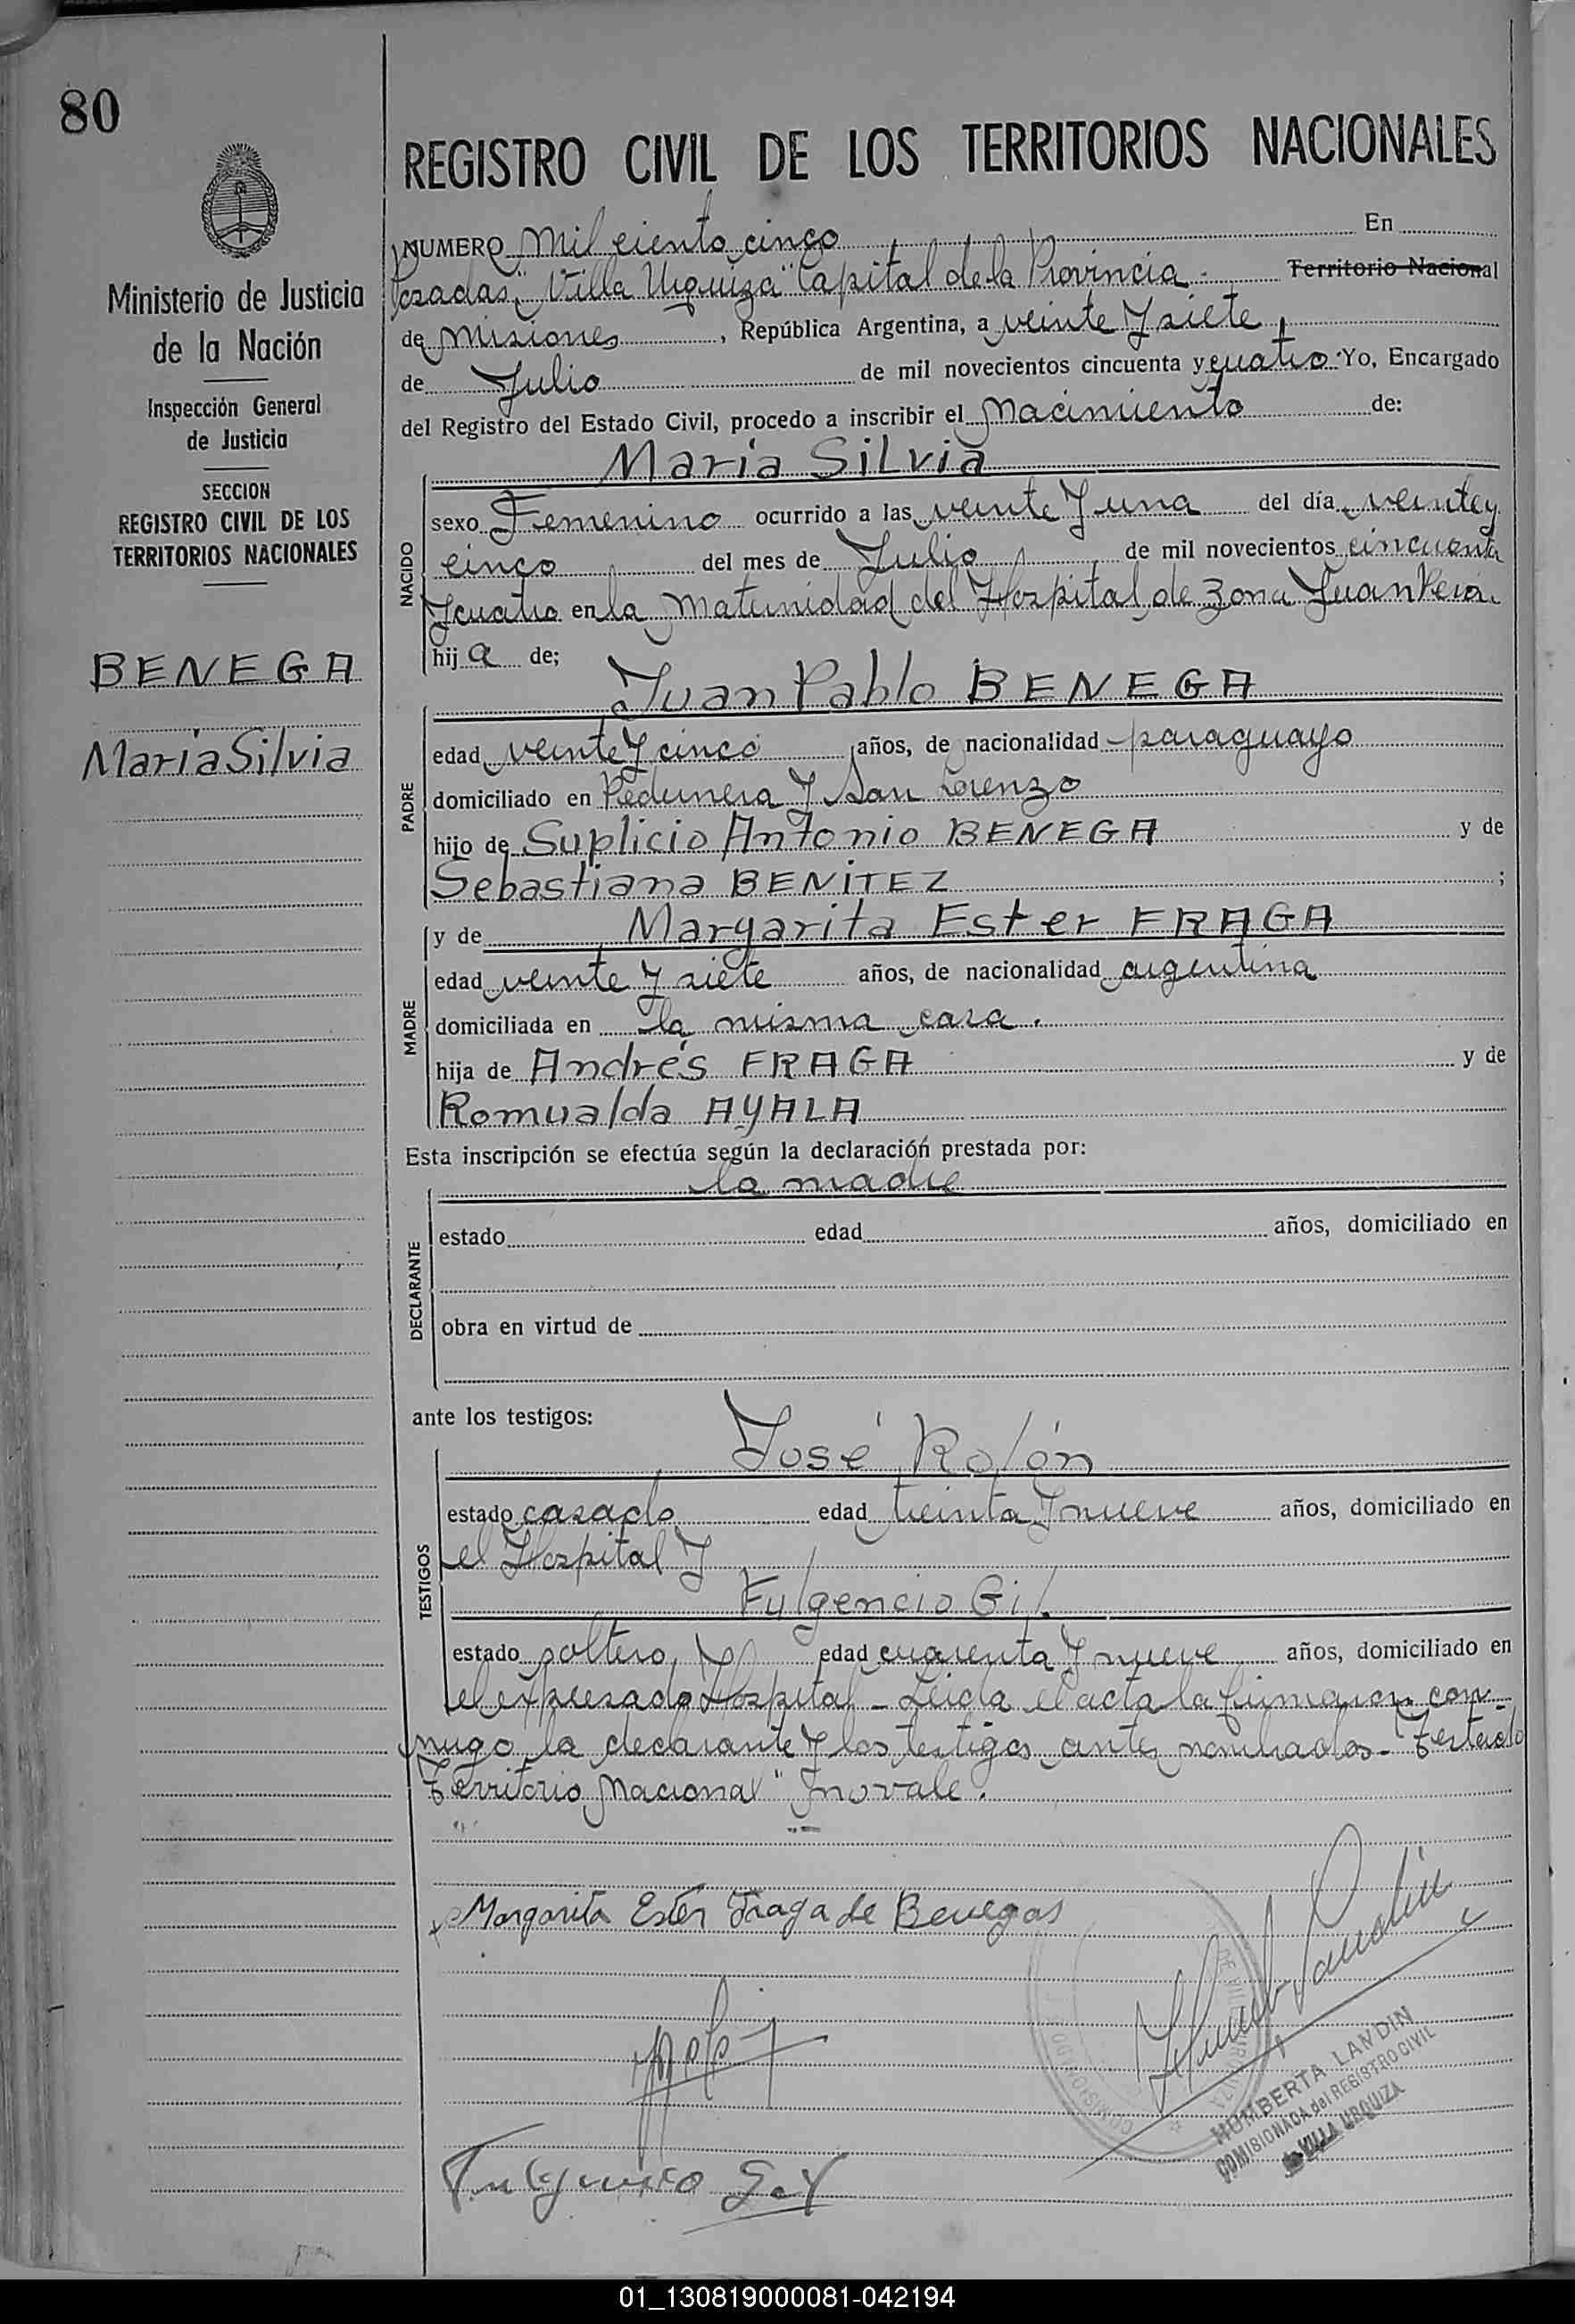 80
Ministerio de Justicia
de la Nación
Inspección General
de Justicia
SECCION
REGISTRO CIVIL DE LOS
TERRITORIOS NACIONALES
BENEGA
María Silvia
REGISTRO CIVIL DE LOS TERRITORIOS NACIONALES
NUMERO Mil ciento cinco En
Posadas, "Villa Urquiza" Capital de la Provincia - Territorio Nacional
de Misiones, República Argentina, a veinte y siete
de Julio de mil novecientos cincuenta y cuatro Yo, Encargado
del Registro del Estado Civil, procedo a inscribir el Nacimiento de:
María Silvia
NACIDO
sexo Femenino ocurrido a las veinte y una del día veinte y
cinco del mes de Julio de mil novecientos cincuenta
y cuatro en la Maternidad del Hospital de Zona Juan Perón.
hija de;
Juan Pablo BENEGA
PADRE
edad veinte y cinco años, de nacionalidad paraguayo
domiciliado en Pedernera y San Lorenzo
hijo de Suplicio Antonio BENEGA y de
Sebastiana BENITEZ ;
y de Margarita Ester FRAGA
MADRE
edad veinte y siete años, de nacionalidad argentina
domiciliada en la misma casa.
hija de Andrés FRAGA y de
Romualda AYALA
Esta inscripción se efectúa según la declaración prestada por:
la madre
DECLARANTE
estado edad años, domiciliado en
obra en virtud de
ante los testigos:
José Rolón
TESTIGOS
estado casado edad treinta y nueve años, domiciliado en
el Hospital y
Fulgencio Gil.
estado soltero, edad cuarenta y nueve años, domiciliado en
el expresado Hospital - Leida el acta la firmaron con-
migo la declarante y los testigos antes nombrados - Testado
"Territorio Nacional" no vale.
Margarita Ester Fraga de Benegas
HUMBERTA LANDIN
COMISIONADA del REGISTRO CIVIL
VILLA URQUIZA
01_130819000081-042194